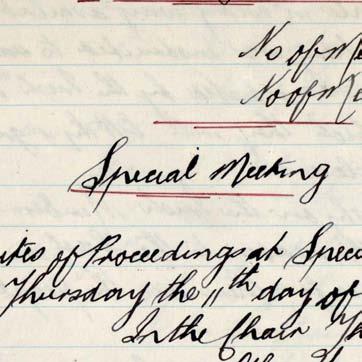 No of Me
No of Me
Special Meeting
utes of Proceedings at Spec
Thursday the 11th day of
In the Chair